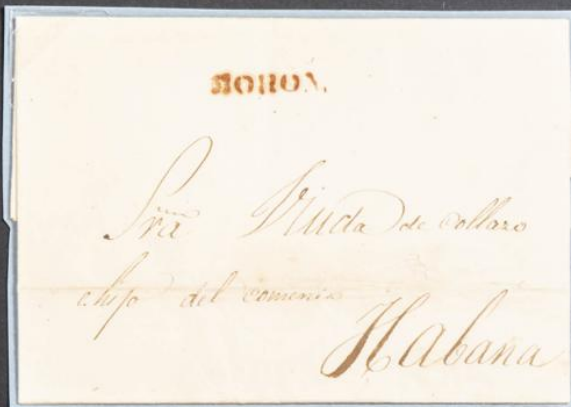 MORON.
Sra Viuda de Collazo
e hijo del comercio
Habana